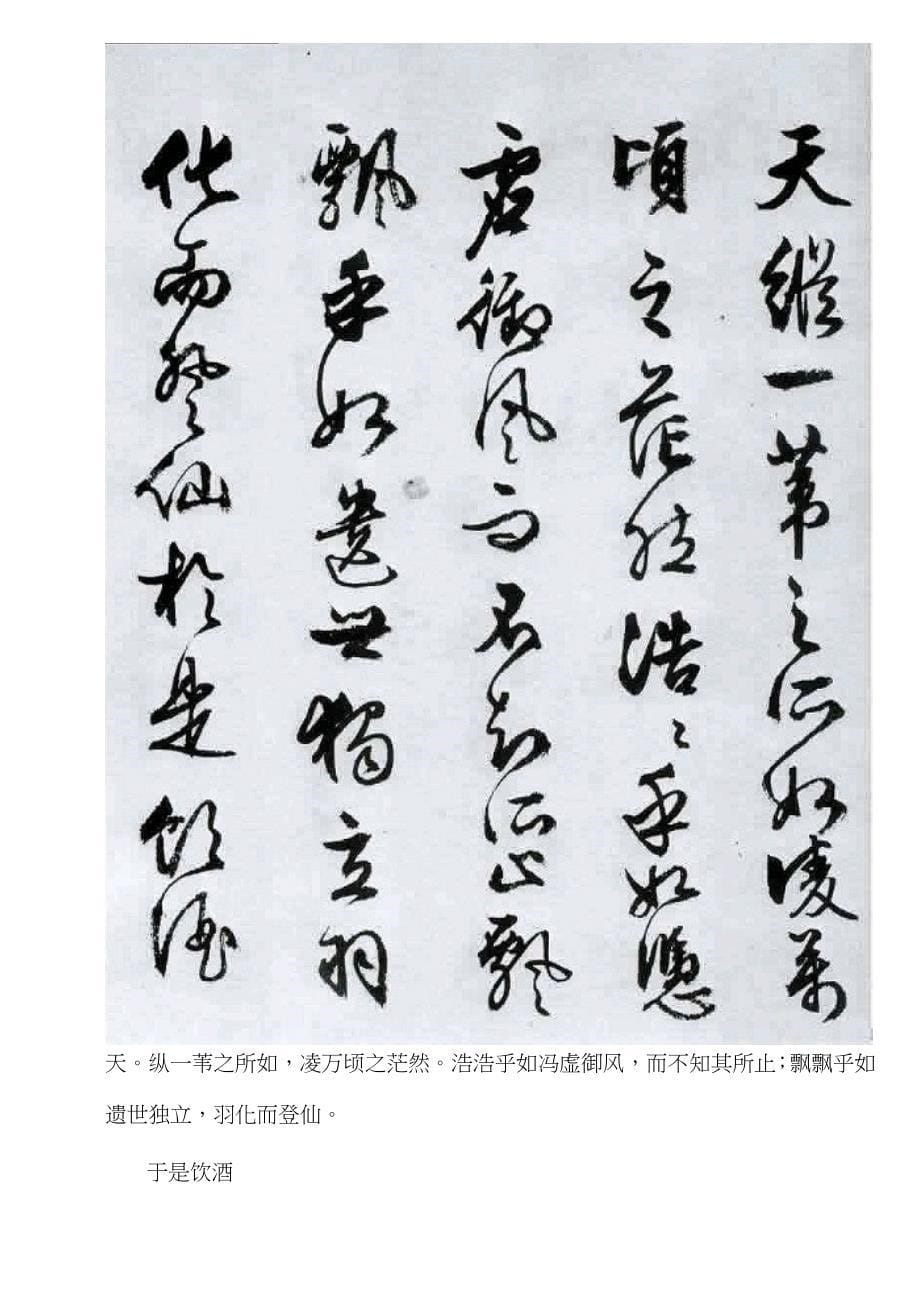 天縱一葦之所如凌萬
頃之茫然浩〻乎如憑
虛御風而不知所止飄
飄乎如遺世獨立羽
化而登仙於是飲酒
天。纵一苇之所如，凌万顷之茫然。浩浩乎如冯虚御风，而不知其所止；飘飘乎如
遗世独立，羽化而登仙。
于是饮酒